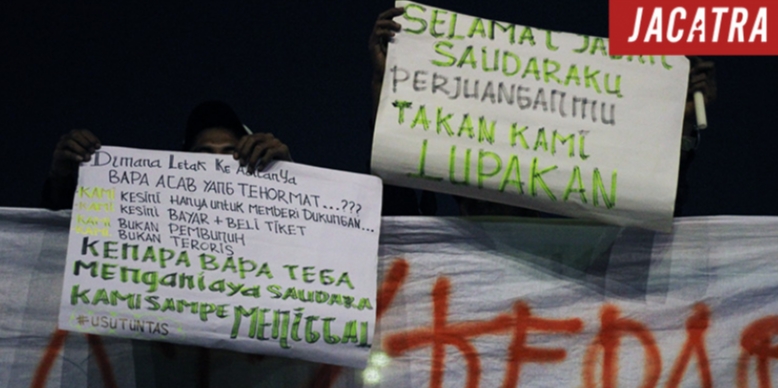 JACATRA
SELAMAT JALAN
SAUDARAKU
PERJUANGANMU
TAKAN KAMI
LUPAKAN
Dimana Letak Ke Adilanya
BAPA ACAB YANG TEHORMAT...???
KAMI KESINI HANYA UNTUK MEMBERI DUKUNGAN...
KAMI KESINI BAYAR + BELI TIKET
KAMI BUKAN PEMBUNUH
KAMI BUKAN TERORIS
KENAPA BAPA TEGA
MENGANIAYA SAUDARA
KAMI SAMPE MENINGGAL
#USUTUNTAS